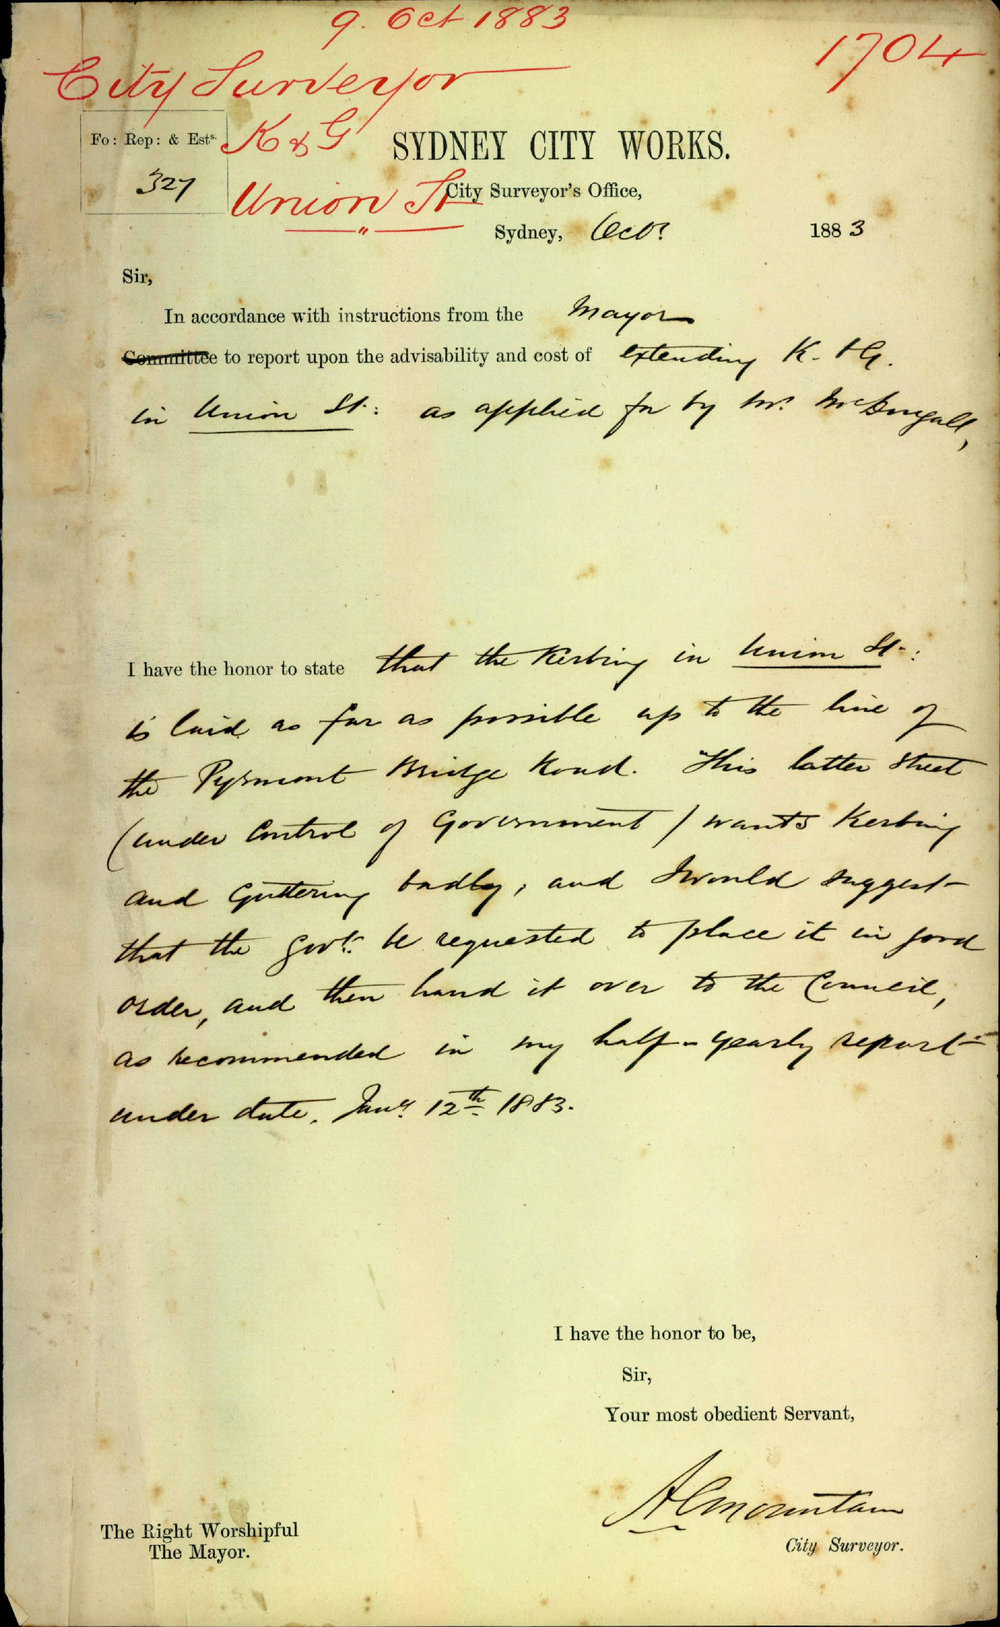 9. Oct 1883
1704
City Surveyor
Fo: Rep: & Ests.
K & G
SYDNEY CITY WORKS.
327
Union St
City Surveyor's Office,
Sydney, Octr. 1883
Sir,
In accordance with instructions from the Mayor
Committee to report upon the advisability and cost of extending K. & G.
in Union St: as applied for by Mr. McDougall,
I have the honor to state that the Kerbing in Union St:
is laid as far as possible up to the line of
the Pyrmont Bridge Road. This latter street
(under control of Government) wants Kerbing
and Guttering badly, and I would suggest
that the Govt. be requested to place it in good
order, and then hand it over to the Council,
as recommended in my half-yearly report
under date, Jany. 12th 1883.
I have the honor to be,
Sir,
Your most obedient Servant,
A C Mountain
City Surveyor.
The Right Worshipful
The Mayor.